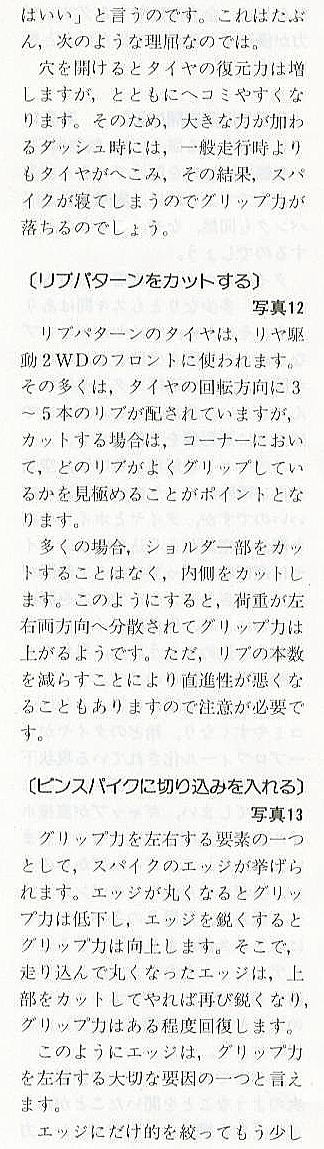 はいい」と言うのです。これはたぶ
ん，次のような理屈なのでは。
　穴を開けるとタイヤの復元力は増
しますが，とともにヘコミやすくな
ります。そのため，大きな力が加わ
るダッシュ時には，一般走行時より
もタイヤがへこみ，その結果，スパ
イクが寝てしまうのでグリップ力が
落ちるのでしょう。
〔リブパターンをカットする〕
写真12
　リブパターンのタイヤは，リヤ駆
動２ＷＤのフロントに使われます。
その多くは，タイヤの回転方向に３
〜５本のリブが配されていますが，
カットする場合は，コーナーにおい
て，どのリブがよくグリップしてい
るかを見極めることがポイントとな
ります。
　多くの場合，ショルダー部をカッ
トすることはなく，内側をカットし
ます。このようにすると，荷重が左
右両方向へ分散されてグリップ力は
上がるようです。ただ，リブの本数
を減らすことにより直進性が悪くな
ることもありますので注意が必要で
す。
〔ピンスパイクに切り込みを入れる〕
写真13
　グリップ力を左右する要素の一つ
として，スパイクのエッジが挙げら
れます。エッジが丸くなるとグリッ
プ力は低下し，エッジを鋭くすると
グリップ力は向上します。そこで，
走り込んで丸くなったエッジは，上
部をカットしてやれば再び鋭くなり，
グリップ力はある程度回復します。
　このようにエッジは，グリップ力
を左右する大切な要因の一つと言え
ます。
　エッジにだけ的を絞ってもう少し